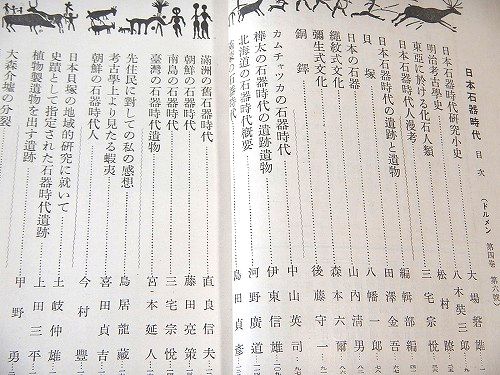 日本石器時代 目次 (ドルメン 第四巻 第六號)
日本石器時代研究小史 大場磐雄
明治考古學史 八木奘三郎
東亞に於ける化石人類 松村瞭
日本石器時代人漫考 三宅宗悅
日本石器時代の遺跡と遺物 編輯部編
貝塚 田澤金吾
日本の石器 八幡一郎
繩紋式文化 山内清男
彌生式文化 森本六爾
銅鐸 後藤守一
カムチャツカの石器時代 中山英司
樺太の石器時代の遺跡遺物 伊東信雄
北海道の石器時代概要 河野廣道
島田貞彦
滿洲の舊石器時代 直良信夫
朝鮮の石器時代 藤田亮策
南島の石器時代 三宅宗悅
臺灣の石器時代遺物 宮本延人
先住民に對しての私の感想 鳥居龍藏
考古學上より見たる蝦夷 喜田貞吉
朝鮮の石器時代人 今村豐
日本貝塚の地域的研究に就いて 土岐仲雄
史蹟として指定された石器時代遺跡 上田三平
植物製遺物を出す遺跡 甲野勇
大森介墟の分裂